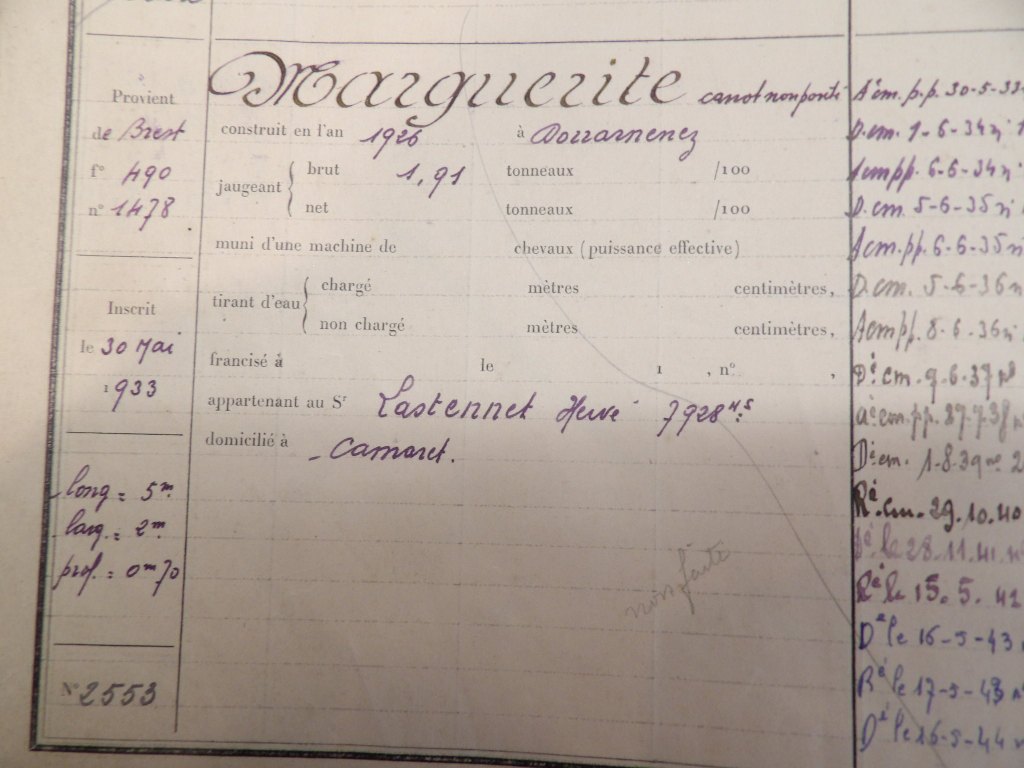 Provient
de Brest
f° 490
n° 1478
Inscrit
le 30 Mai
1933
long = 5m
larg = 2m
prof. = 0m70
N° 2553
Marguerite canot non ponté
construit en l'an 1926 à Douarnenez
jaugeant { brut 1,91 tonneaux /100
net tonneaux /100
muni d'une machine de chevaux (puissance effective)
tirant d'eau { chargé mètres centimètres,
non chargé mètres centimètres,
francisé à le 1 , n° ,
appartenant au Sr Lastennet Hervé 7928
domicilié à Camaret.
non faite
Aé cm. p.p. 30-5-33
D. cm. 1-6-34 n°
A cm pp. 6-6-34 n°
D. cm. 5-6-35 n°
A cm. pp. 6-6-35 n°
D. cm. 5-6-36 n
A cm pp. 8-6-36 n°
Dé cm. 9-6-37 n°
Aé cm. pp. 27-7-38 n
Dé cm. 1-8-39 n° 2
Ré cm. 29.10.40
Dé le 28.11.41 n°
Ré le 15.5.42
Dé le 16-5-43
Ré le 17-5-43 n°
Dé le 16-5-44 n